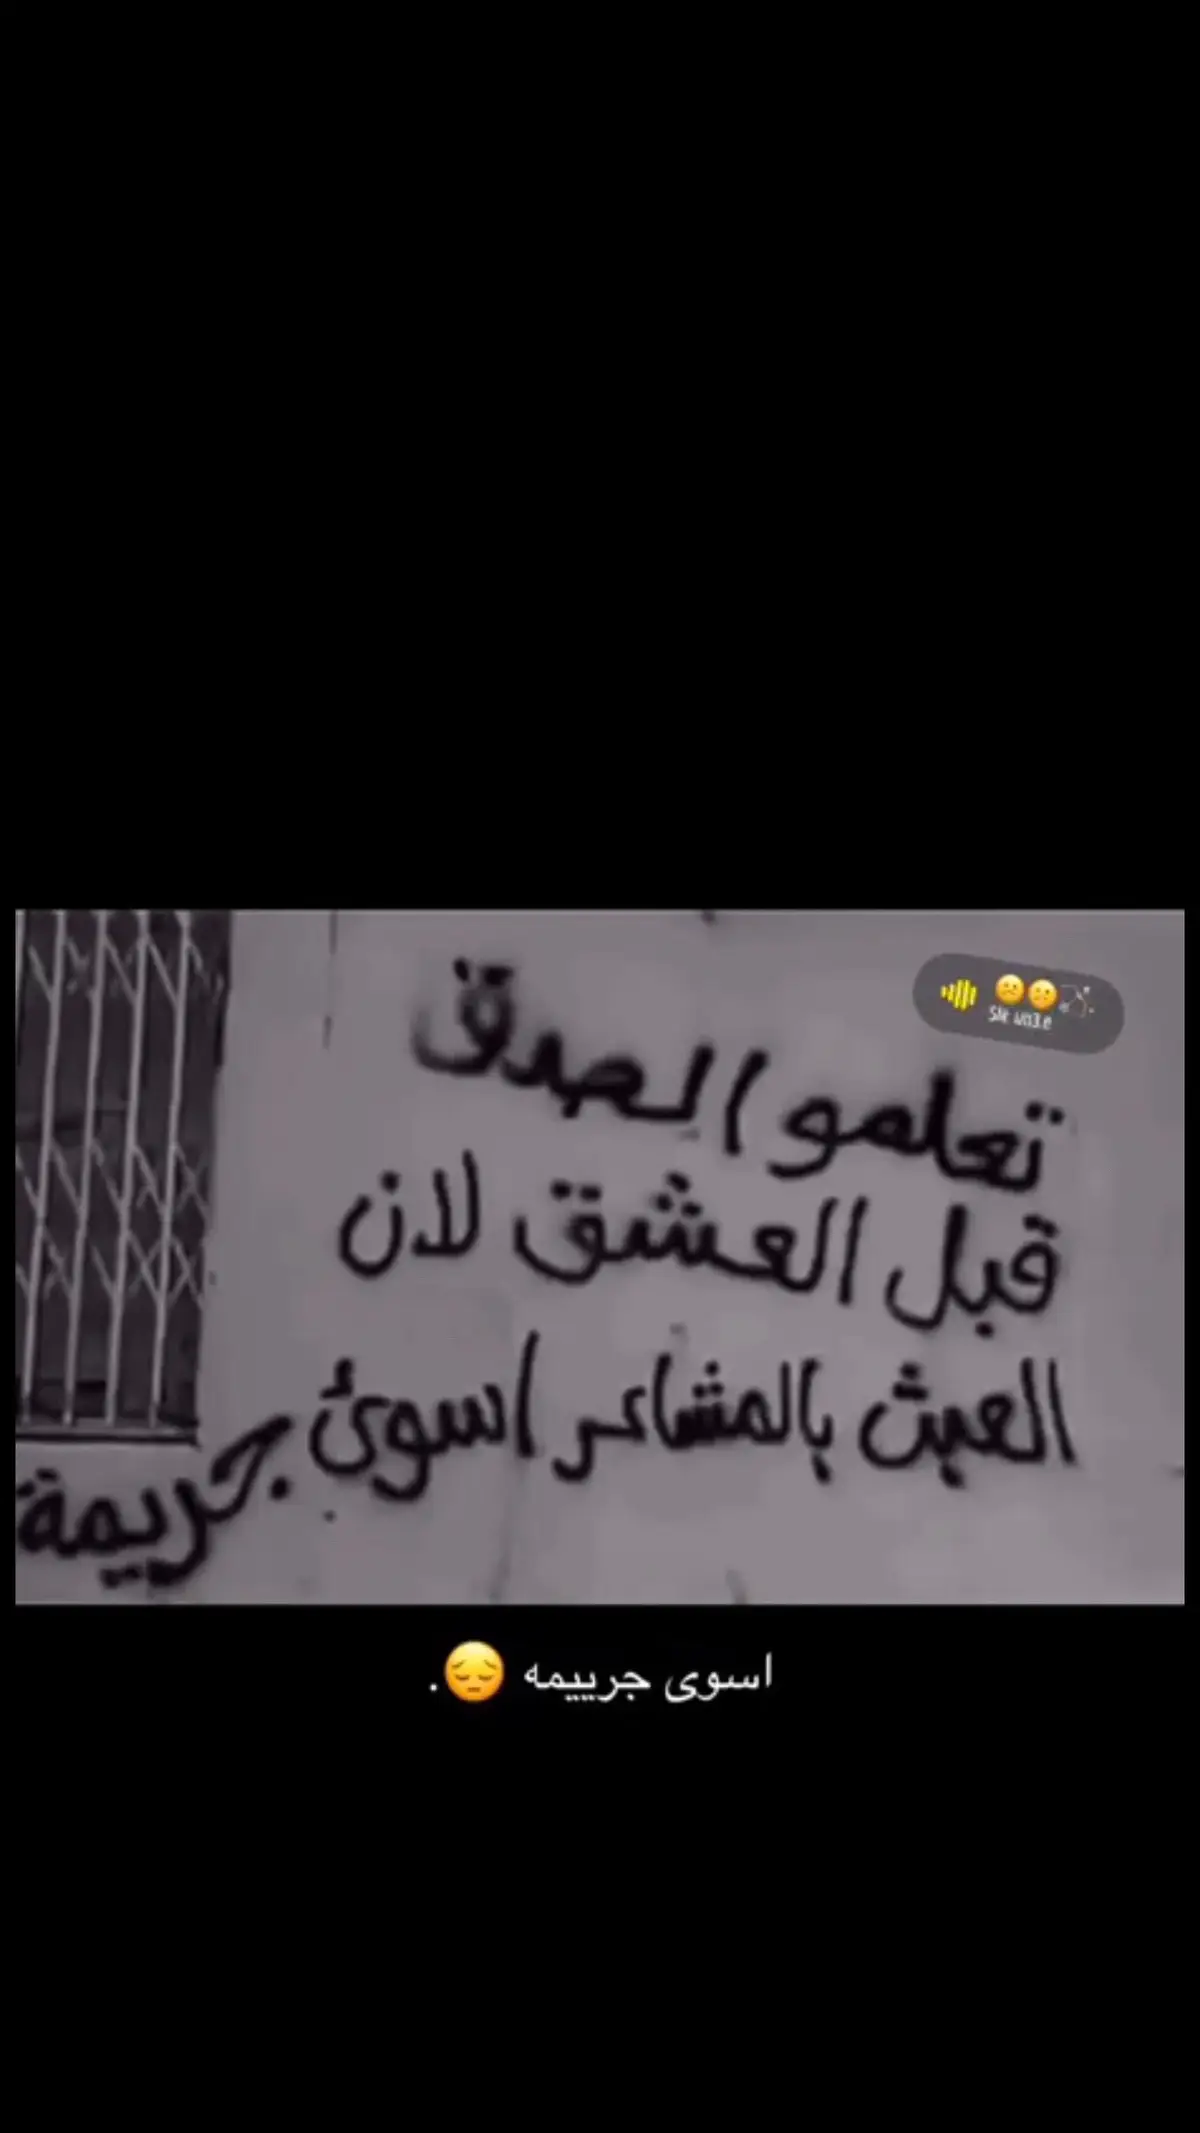 تعلمو الصدق
قبل العشق لان
العبث بالمشاعر اسوئ جريمة
اسوى جرييمه 😔.